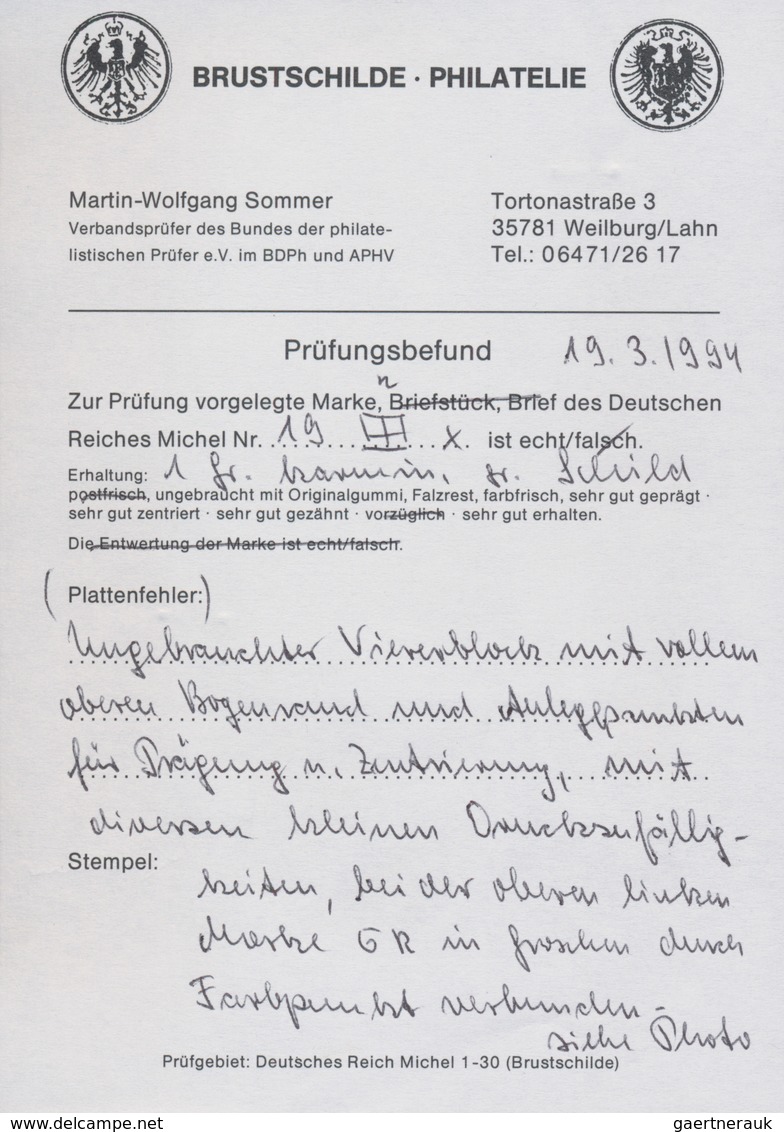 BRUSTSCHILDE · PHILATELIE
Martin-Wolfgang Sommer
Verbandsprüfer des Bundes der philate-
listischen Prüfer e.V. im BDPh und APHV
Tortonastraße 3
35781 Weilburg/Lahn
Tel.: 06471/26 17
Prüfungsbefund 19.3.1994
Zur Prüfung vorgelegte Marken, Briefstück, Brief des Deutschen
Reiches Michel Nr. 19 x ist echt/falsch.
Erhaltung: 1 Gr. karmin, gr. Schild
postfrisch, ungebraucht mit Originalgummi, Falzrest, farbfrisch, sehr gut geprägt ·
sehr gut zentriert · sehr gut gezähnt · vorzüglich · sehr gut erhalten.
Die Entwertung der Marke ist echt/falsch.
(Plattenfehler:)
Ungebrauchter Viererblock mit vollem
oberen Bogenrand und Anlegepunkten
für Prägung u. Zentrierung, mit
diversen kleinen Druckzufällig-
Stempel:
keiten, bei der oberen linken
Marke GR in Groschen durch
Farbpunkt verbunden -
siehe Photo
Prüfgebiet: Deutsches Reich Michel 1-30 (Brustschilde)
www.delcampe.net
gaertnerauk